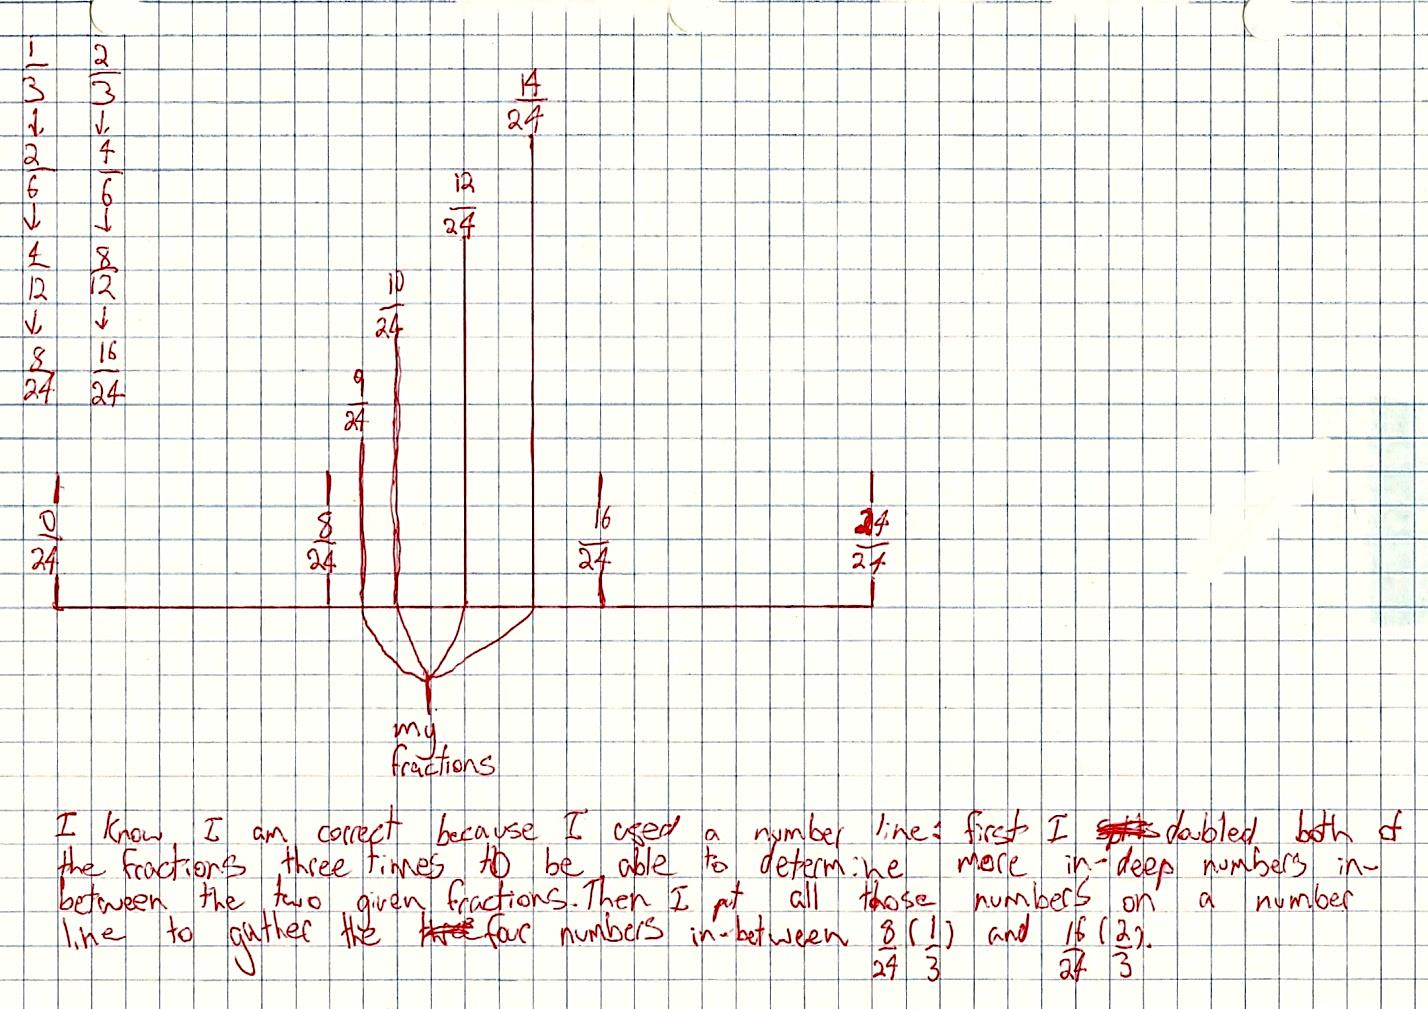 1/3 2/3
↓ ↓
2/6 4/6
↓ ↓
4/12 8/12
↓ ↓
8/24 16/24
14/24
12/24
10/24
9/24
0/24 8/24 16/24 24/24
my
fractions
I know I am correct because I used a number line: first I doubled both of
the fractions three times to be able to determine more in-deep numbers in-
between the two given fractions. Then I put all those numbers on a number
line to guther the four numbers in-between 8/24 (1/3) and 16/24 (2/3).